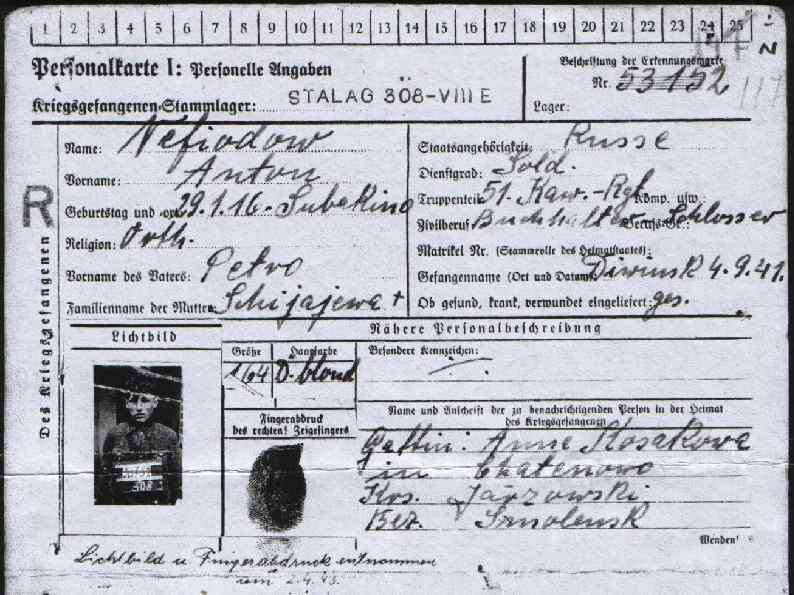 1 2 3 4 5 6 7 8 9 10 11 12 13 14 15 16 17 18 19 20 21 22 23 24 25
Personalkarte I: Personelle Angaben
Kriegsgefangenen-Stammlager: STALAG 308-VIII E
Beschriftung der Erkennungsmarke
Nr. 53152
Lager:
Des Kriegsgefangenen
R
Name: Nefiodow
Vorname: Anton
Geburtstag und -ort: 29.1.16. Subekino
Religion: Orth.
Vorname des Vaters: Petro
Familienname der Mutter: Schijajewa +
Staatsangehörigkeit: Russe
Dienstgrad: Sold.
Truppenteil: 51. Kaw.-Rgt. Komp. usw.:
Zivilberuf: Buchhalter-Schlosser Berufs-Gr.:
Matrikel Nr. (Stammrolle des Heimatstaates):
Gefangennahme (Ort und Datum): Diwinsk 4.9.41.
Ob gesund, krank, verwundet eingeliefert: ges.
Lichtbild
Nähere Personalbeschreibung
Größe Haarfarbe Besondere Kennzeichen:
1/64 D-blond
Fingerabdruck
des rechten! Zeigefingers
308
Name und Anschrift der zu benachrichtigenden Person in der Heimat
des Kriegsgefangenen
Gattin: Anne Kosakowa
in Ekatenowo
Krs. Jarzowski
Bez. Smolensk
Wenden!
Lichtbild u Fingerabdruck entnommen
am 2.4.43.